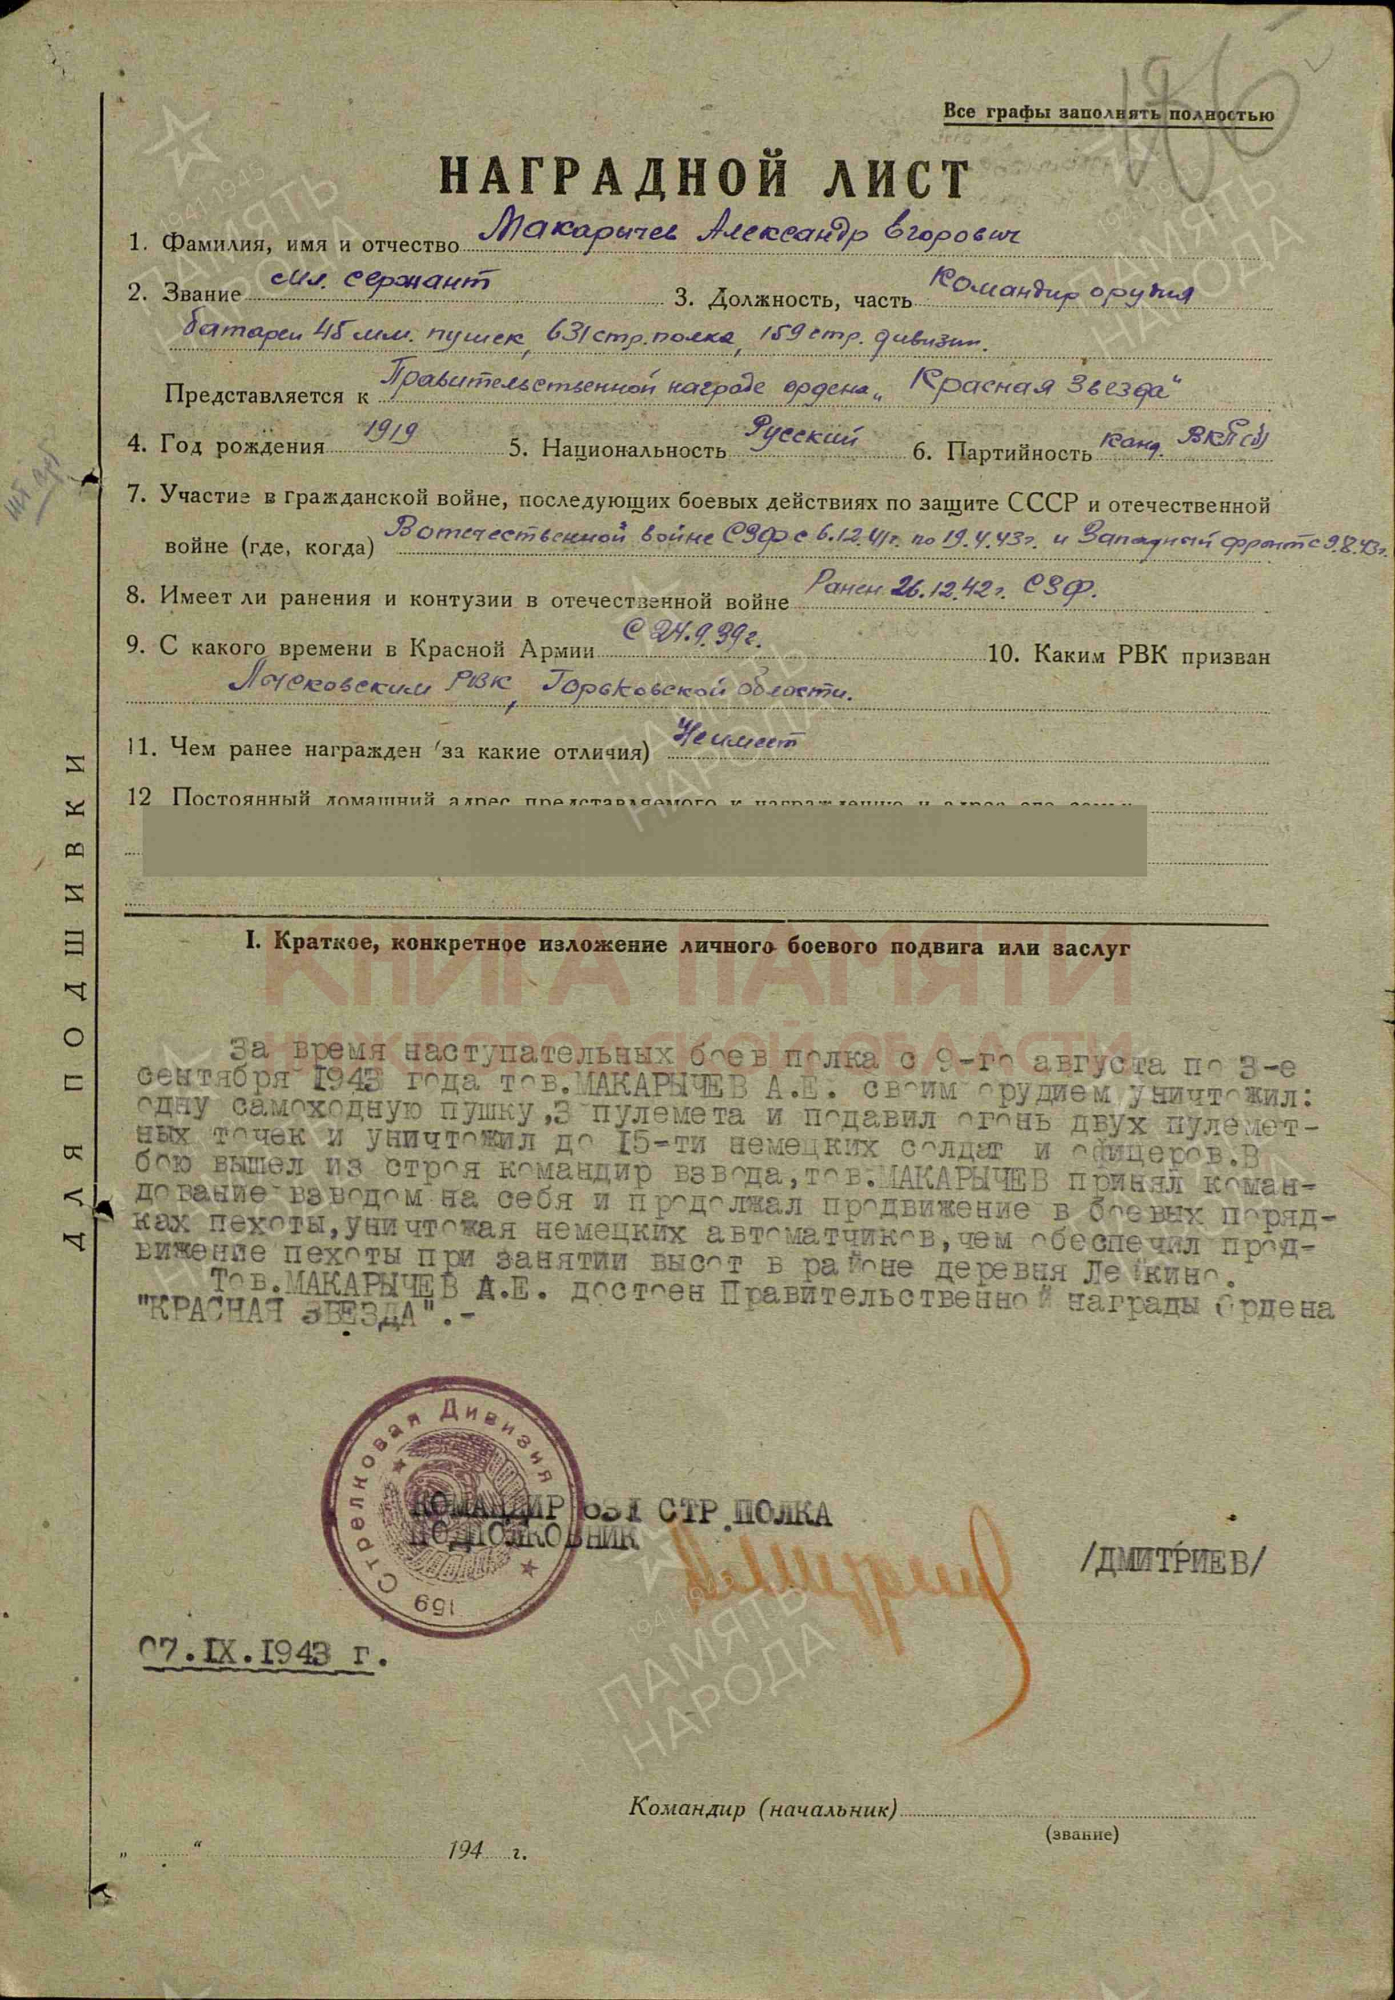 186
Все графы заполнять полностью
НАГРАДНОЙ ЛИСТ
1. Фамилия, имя и отчество Макарычев Александр Егорович
2. Звание мл. сержант 3. Должность, часть Командир орудия
батареи 45 мм. пушек, 631 стр. полка, 159 стр. дивизии.
Представляется к Правительственной награде ордена „Красная Звезда"
4. Год рождения 1919 5. Национальность Русский 6. Партийность канд. ВКП(б)
7. Участие в гражданской войне, последующих боевых действиях по защите СССР и отечественной
войне (где, когда) В отечественной войне СЗФ с 6.12.41г. по 19.4.43г. и Западный фронт с 9.8.43г.
8. Имеет ли ранения и контузии в отечественной войне Ранен 26.12.42г. СЗФ.
9. С какого времени в Красной Армии С 24.9.39г. 10. Каким РВК призван
Лысковским РВК, Горьковской области.
11. Чем ранее награжден (за какие отличия) Не имеет
12 Постоянный домашний адрес представляемого к награждению и адрес его семьи
I. Краткое, конкретное изложение личного боевого подвига или заслуг
КНИГА ПАМЯТИ
НИЖЕГОРОДСКОЙ ОБЛАСТИ
За время наступательных боев полка с 9-го августа по 3-е
сентября 1943 года тов.МАКАРЫЧЕВ А.Е. своим орудием уничтожил:
одну самоходную пушку,3 пулемета и подавил огонь двух пулемет-
ных точек и уничтожил до 15-ти немецких солдат и офицеров.В
бою вышел из строя командир взвода,тов.МАКАРЫЧЕВ принял коман-
дование взводом на себя и продолжал продвижение в боевых поряд-
ках пехоты,уничтожая немецких автоматчиков,чем обеспечил прод-
вижение пехоты при занятии высот в районе деревня Лейкино.
Тов.МАКАРЫЧЕВ А.Е. достоен Правительственной награды Ордена
"КРАСНАЯ ЗВЕЗДА".-
159 Стрелковая Дивизия
КОМАНДИР 631 СТР.ПОЛКА
ПОДПОЛКОВНИК
/ДМИТРИЕВ/
07.IX.1943 г.
Командир (начальник)
(звание)
„ “ 194 г.
ДЛЯ ПОДШИВКИ
1941 19
ПАМЯТЬ
НАРОДА